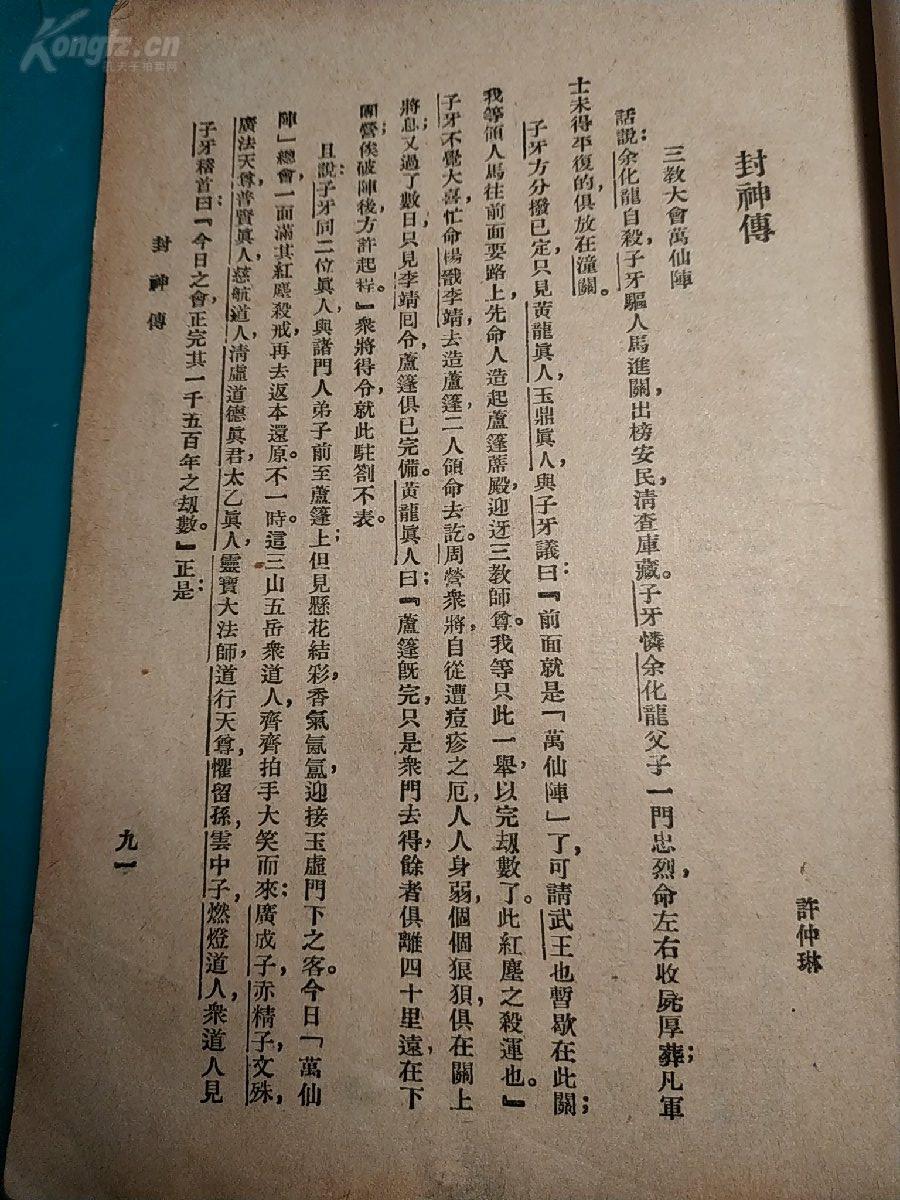 Kongfz.cn
孔夫子拍卖网
封神傳
許仲琳
三教大會萬仙陣
話說：余化龍自殺，子牙驅人馬進關，出榜安民，清查庫藏。子牙憐余化龍父子一門忠烈，命左右收屍厚葬；凡軍
士未得平復的，俱放在潼關。
子牙方分撥已定，只見黃龍眞人，玉鼎眞人，與子牙議曰：『前面就是「萬仙陣」了，可請武王也暫歇在此關；
我等領人馬往前面要路上，先命人造起蘆篷蓆殿，迎迓三教師尊。我等只此一舉，以完刼數了。此紅塵之殺運也。』
子牙不覺大喜，忙命楊戩李靖去造蘆篷，二人領命去訖。周營衆將，自從遭痘疹之厄，人人身弱，個個狠狽，俱在關上
將息；又過了數日，只見李靖囘令，蘆篷俱已完備。黃龍眞人曰：『蘆篷旣完，只是衆門去得，餘者俱離四十里遠，在下
團營，俟破陣後，方許起程。』衆將得令，就此駐劄不表。
且說：子牙同二位眞人，與諸門人弟子，前至蘆篷上；但見懸花結彩，香氣氤氳，迎接玉虛門下之客。今日「萬仙
陣」總會，一面滿其紅塵殺戒，再去返本還原。不一時。這三山五岳衆道人，齊齊拍手大笑而來：廣成子，赤精子，文殊，
廣法天尊，普賢眞人，慈航道人，淸虛道德眞君，太乙眞人，靈寶大法師，道行天尊，懼留孫，雲中子，燃燈道人，衆道人見
子牙稽首曰：『今日之會，正完其一千五百年之刼數。』正是：
封神傳
九一